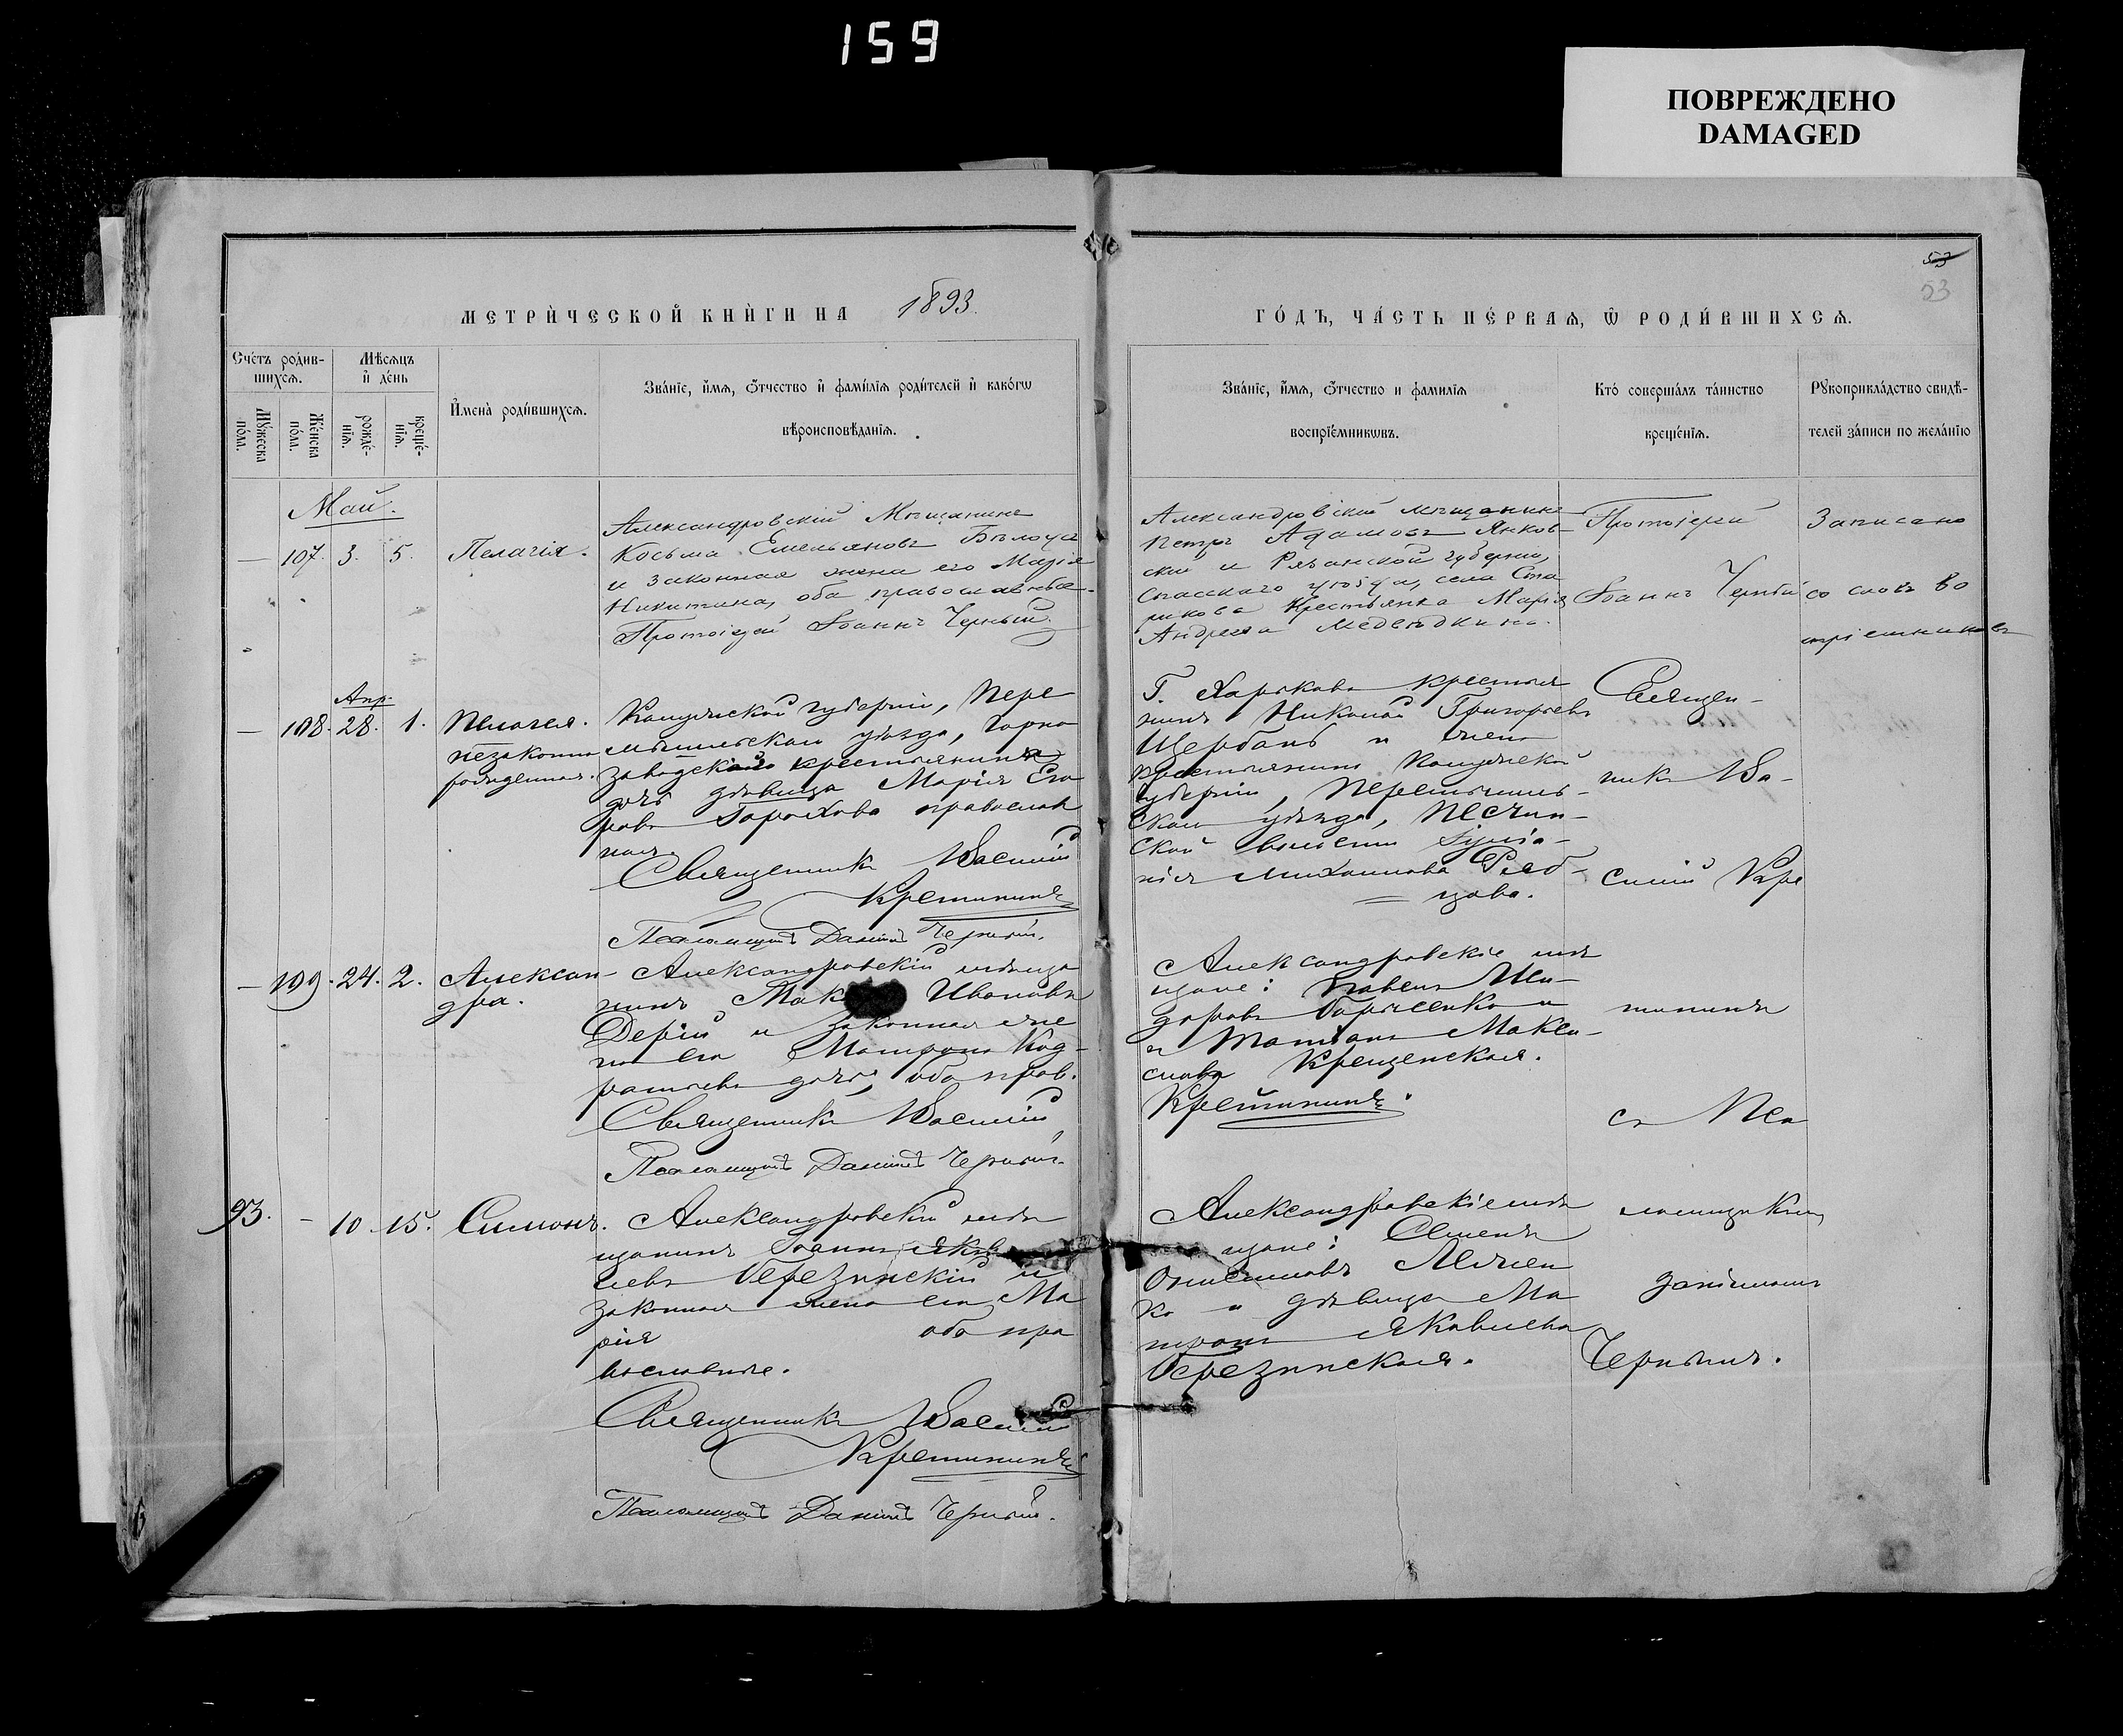 159
ПОВРЕЖДЕНО
DAMAGED
53
53
МЕТРИ́ЧЕСКОЙ КНИ́ГИ НА 1893.
ГО́ДЪ, ЧА́СТЬ ПЕ́РВАЯ, Ѿ РОДИ́ВШИХСЯ.
Сче́тъ роди́в-
шихся.
Мѣ́сяцъ
и́ де́нь
Мꙋ́жеска по́ла.
Же́нска по́ла.
рожде́-
нїя.
креще́-
нїя.
И́мена̀ роди́вшихся.
Зва́нїе, и́мя, ѻ́тчество и́ фами́лїя роди́телей и́ како́гѡ
вѣроисповѣ́данїя.
Зва́нїе, и́мя, ѻ́тчество и фамилїя
воспрїе́мникѡвъ.
Кто́ соверша́лъ та́инство
креще́нїя.
Рꙋкоприкла́дство свидѣ́-
телей за́писи по жела́нїю
Май.
— 107. 3. 5. Пелагія.
Александровскій Мѣщанинъ
Косьма Емельяновъ
и законная жена его Марія
Никитина, оба православные.
Протоіерей Іоаннъ Черный.
Александровскій мѣщанинъ
Петръ Адамовъ Янков-
скій и Рязанской губерніи,
Спасскаго уѣзда, села Ста
рикова Крестьянка Марія
Андреева Медведкина.
Протоіерей
Іоаннъ Черный
Записано
со словъ во
пріемниковъ
Апр.
— 108. 28. 1. Пелагея.
незаконно
рожденная.
Калужской губерніи, Пере
мышльскаго уѣзда, Горно
заводскаго крестьянина
дочь дѣвица Марія Его
рова Горохова православ
ная.
Священникъ Василій
Кретининъ
Псаломщикъ Даніилъ Черный.
Г. Харькова крестья
нинъ Николай Григорьевъ
Щербань и жена
крестьянина Калужской
губерніи, Перемышль-
скаго уѣзда,
ской волости
нія Михаилова Ряб-
цова.
Священ-
никъ Ва-
силій Кре
— 109. 24. 2. Алексан-
дра.
Александровскій мѣща
нинъ Мак Ивановъ
Дерій и законная же
на его Матрона Код-
ратьева дочь, оба прав.
Священникъ Василій
Псаломщикъ Даніилъ Черный.
Александровскіе мѣ
щане: Павелъ
доровъ Борисенко и
и Татіана Макси-
мова Крещенская.
Кретининъ.
тининъ
съ Пса
93. — 10 15. Симонъ.
Александровскій мѣ
щанинъ Іоаннъ Яков
левъ Березинскій и
законная жена его Ма
рія оба пра
вославные.
Священникъ Василій
Кретининъ
Псаломщикъ Даніилъ Черный.
Александровскіе мѣ
щане: Семенъ
Онисимовъ
ко и дѣвица Ма
трона Яковлева
Березинская.
ломщикомъ
Даніиломъ
Чернымъ.